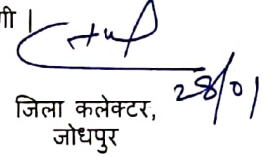 गी।
28/01
जिला कलेक्टर,
जोधपुर